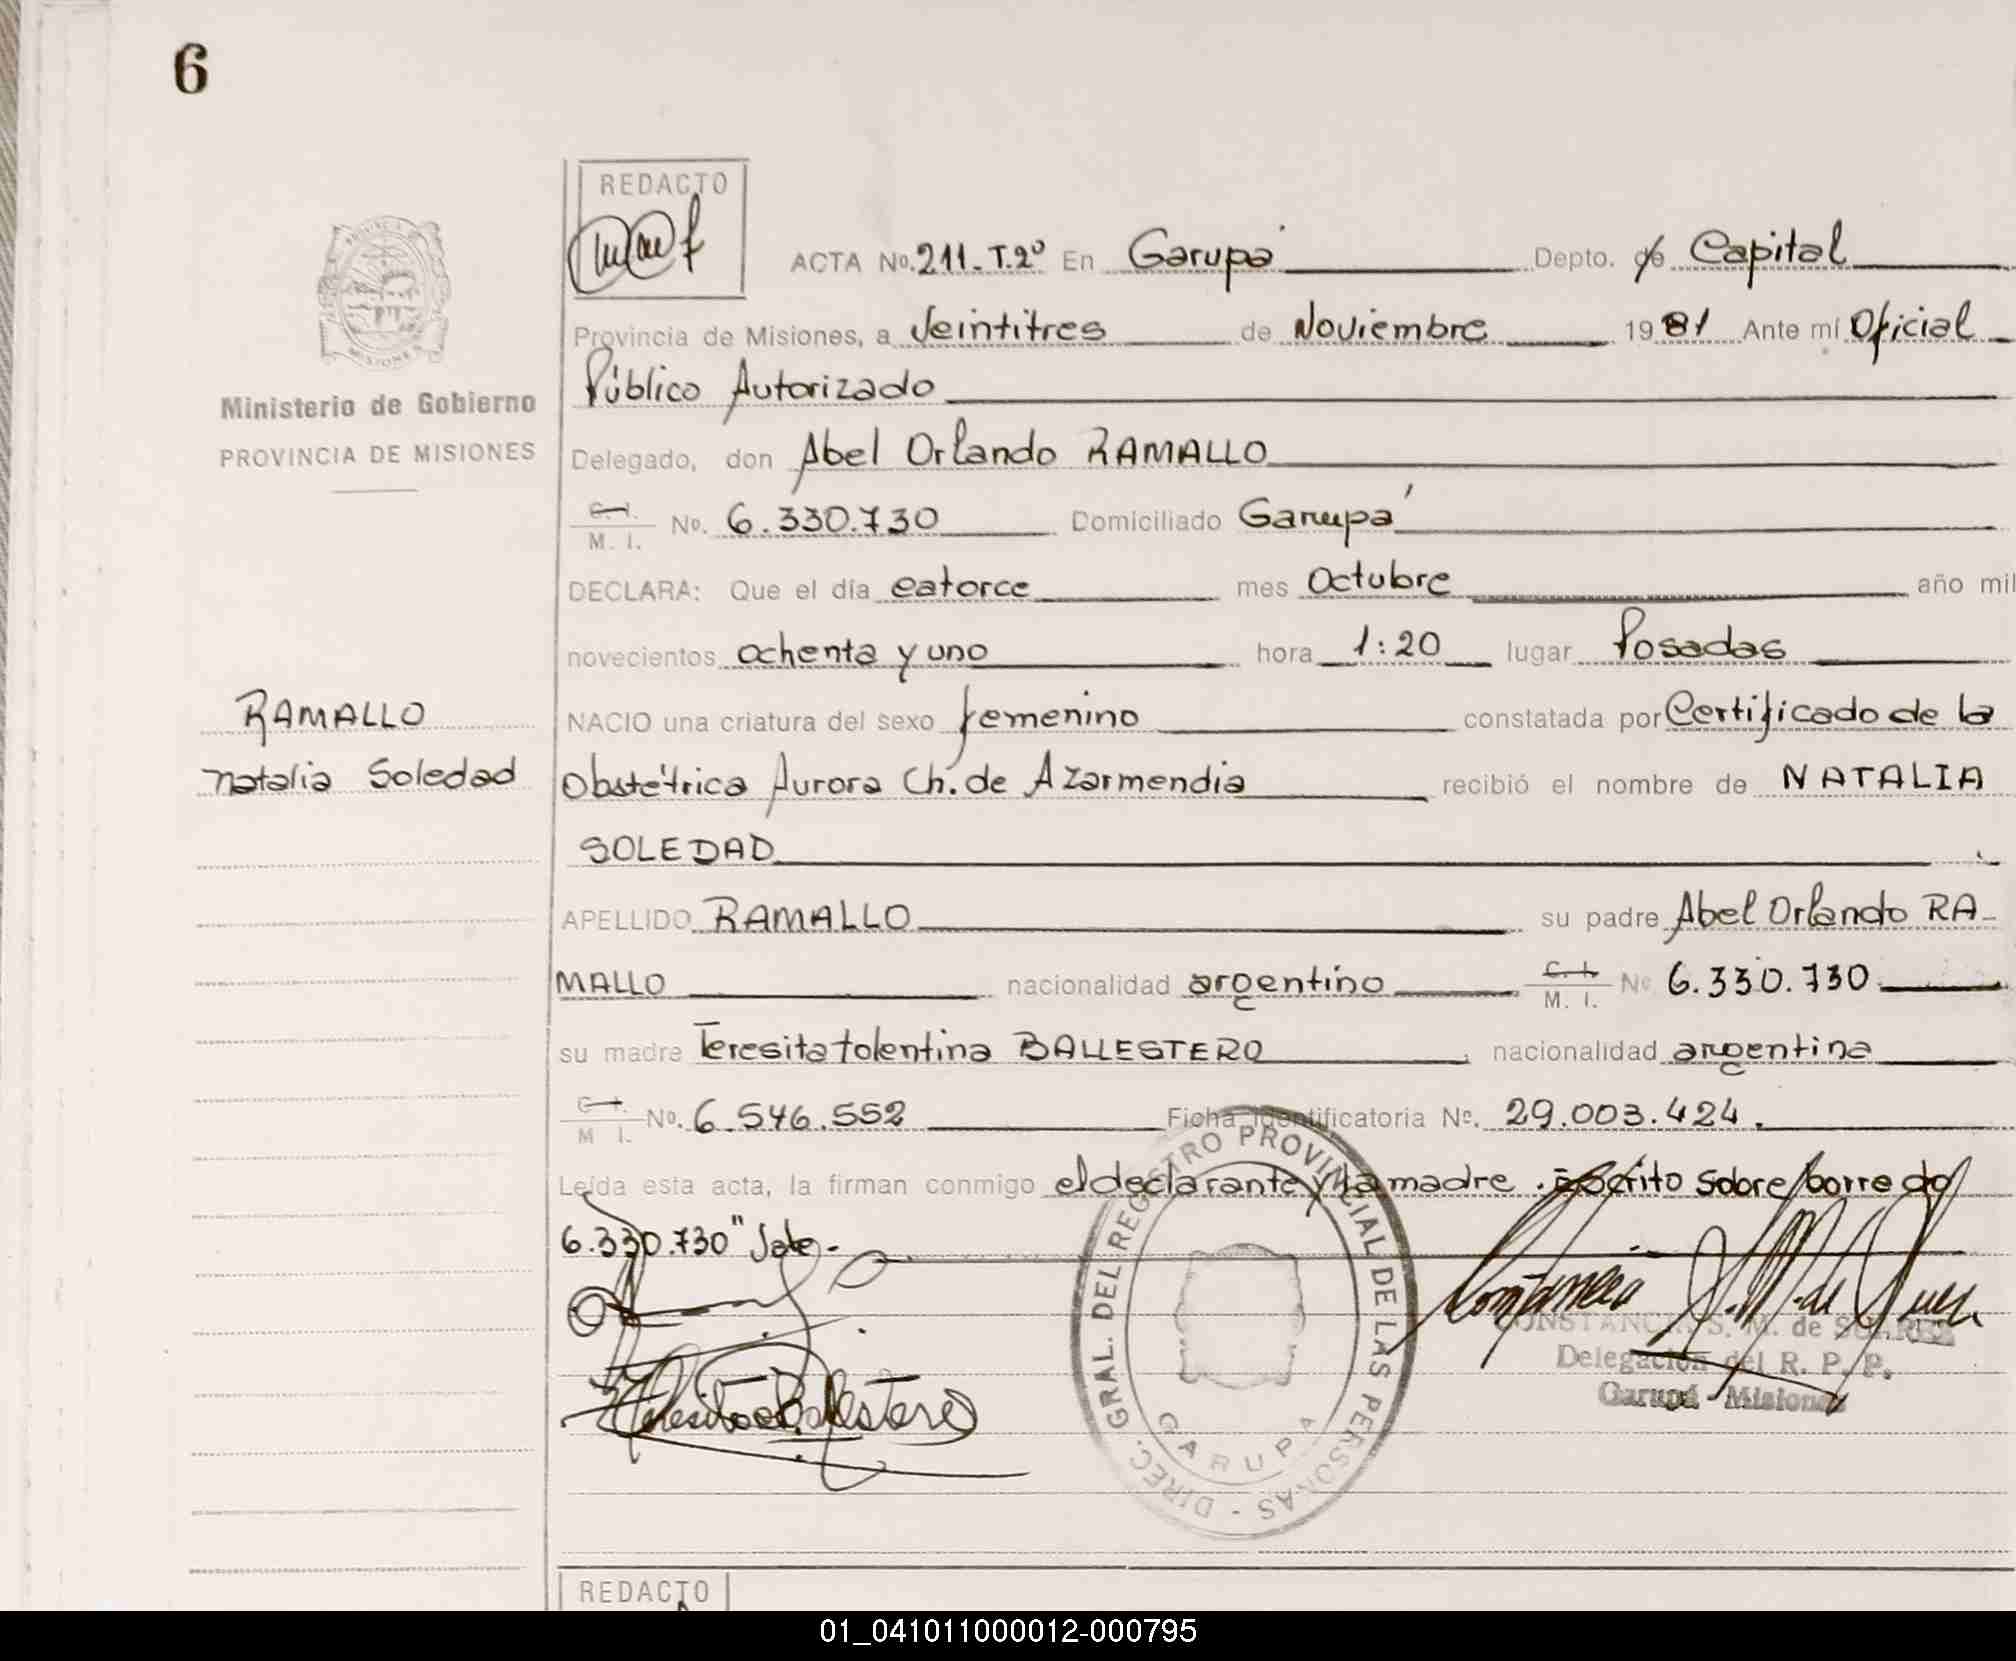 6
REDACTO
ACTA No. 211-T.2º En Garupá Depto. de Capital
Provincia de Misiones, a Veintitres de Noviembre 1981 Ante mí Oficial
Público Autorizado
Ministerio de Gobierno
PROVINCIA DE MISIONES
Delegado, don Abel Orlando RAMALLO
C. I.
M. I. No. 6.330.730 Domiciliado Garupá
DECLARA: Que el día catorce mes Octubre año mil
novecientos ochenta y uno hora 1:20 lugar Posadas
RAMALLO
Natalia Soledad
NACIO una criatura del sexo femenino constatada por Certificado de la
Obstétrica Aurora Ch. de Azarmendia recibió el nombre de NATALIA
SOLEDAD
APELLIDO RAMALLO su padre Abel Orlando RA-
MALLO nacionalidad argentino C. I. M. I. No 6.330.730
su madre Teresita tolentina BALLESTERO nacionalidad argentina
C. I. M. I. No. 6.546.552 Ficha Identificatoria No. 29.003.424.
Leída esta acta, la firman conmigo el declarante y la madre. Escrito sobre borrado
6.330.730" Vale.-
DIREC. GRAL. DEL REGISTRO PROVINCIAL DE LAS PERSONAS -
GARUPA
CONSTANCIA S. M. de
Delegación del R. P. P.
Garupá - Misiones
REDACTO
01_041011000012-000795